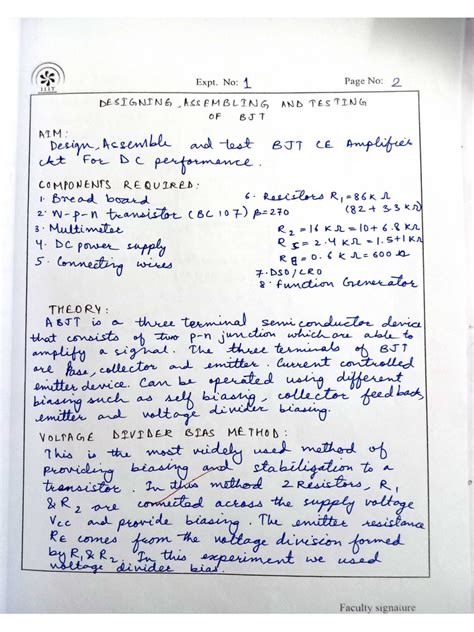 IIIT
Expt. No: 1 Page No: 2
DESIGNING, ASSEMBLING AND TESTING
OF BJT
AIM:
Design, Assemble and test BJT CE Amplifier
ckt For DC performance.
COMPONENTS REQUIRED:
1. Bread board
2. N-p-n transistor (BC 107) β=270
3. Multimeter
4. DC power supply
5. Connecting wires
6. Resistors R1=86KΩ
(82 + 3.3 KΩ)
R2 = 16 KΩ = 10 + 6.8 KΩ
= 2.4 KΩ = 1.5+1KΩ
= 0.6 KΩ = 600 Ω
7. DSO/CRO
8. Function Generator
THEORY:
A BJT is a three terminal semiconductor device
that consists of two p-n junction which are able to
amplify a signal. The three terminals of BJT
are Base, collector and emitter. Current controlled
emitter device. Can be operated using different
biasing such as self biasing, collector feedback,
emitter and voltage divider biasing.
VOLTAGE DIVIDER BIAS METHOD:
This is the most widely used method of
providing biasing and stabilisation to a
transistor. In this method 2 Resistors, R1
& R2 are connected across the supply voltage
Vcc and provide biasing. The emitter resistance
RE comes from the voltage division formed
by R1 & R2. In this experiment we used
voltage divider bias.
Faculty signature